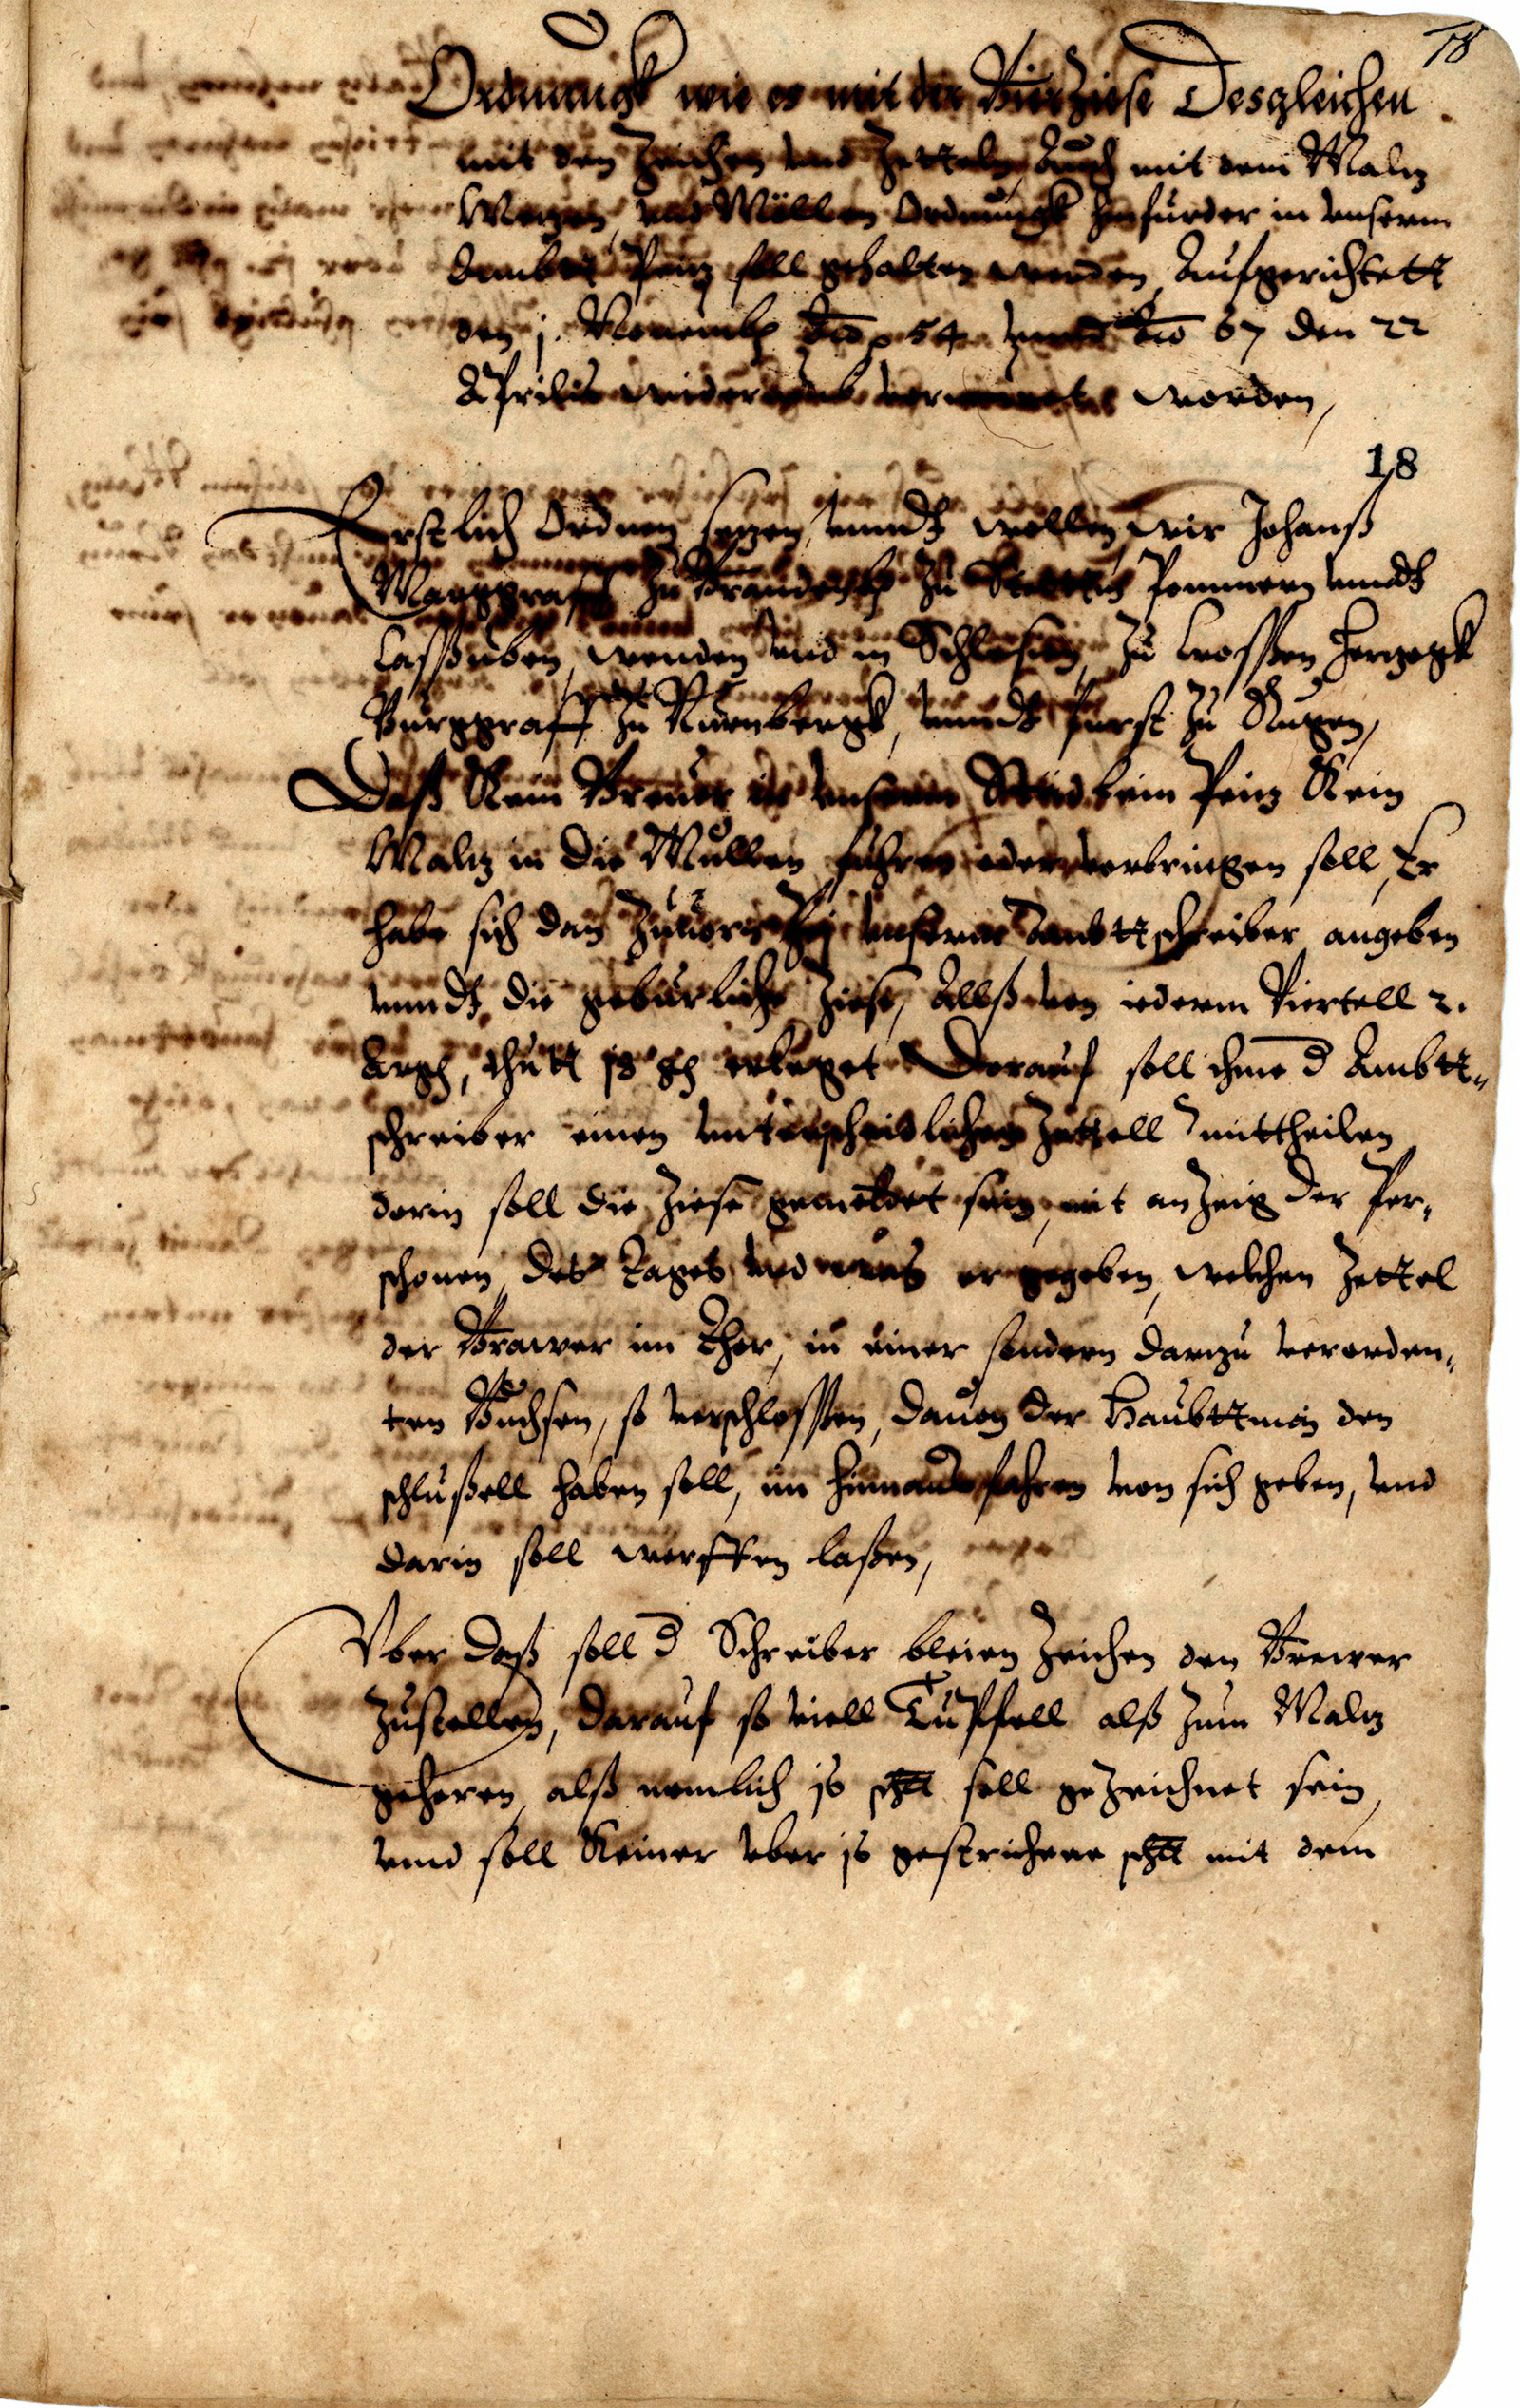 18
Ordnungk wie es mit der Bierziese Desgleichen
mit den Zeichen vnd Zetteln Auch mit dem Maltz
Metzen, vnd Möllen Ordnungk hinfürder in vnserm
Ambtt Peitz soll gehalten werden, Aufgerichtett
den j. Nouemb 54 67 den 22
Aprilis widerumb vernewet worden,
18
Erstlich Ordnen setzen, vnndt wollen, wir Johanß
Marggraff zu Brandenb zu Stettin Pommern vnndt
Cassuben, wenden vnd in Schlesien, zu Crossen Hertzogk
Burggraff zu Nürnbergk, vnndt fürst zu Rugen,
Daß Kein Breuer in vnserm Stedtlein Peitz Kein
Maltz in die Mullen fuhren oder verbringen soll, Er
habe sich dan zuuorn bej vnserm Ambttschreiber angeben
vnndt die geburliche Ziese, Allß von iederm Viertell 2.
thutt erleget Dorauf soll ihme d Ambtt-
schreiber einen vnterscheidlichen Zettell mittheilen
dorin soll die Ziese gemeldet sein, mit anzeig der Per-
schonen, des Tages vnd was er gegeben, welchen Zettel
der Brawer im Thor, in einer sondern dartzu verorden-
ten Buchsen, so verschlossen, dauon der Haubttman den
schlußell haben soll, im hinaus fahren von sich geben, vnd
darin soll werffen laßen,
Vber daß soll d Schreiber bleien Zeichen den Brewer
zustellen, darauf so viell Tüpffell alß zum Maltz
gehoren, alß nemlich j8 schll soll gezeichnet sein,
vnd soll Keiner vber j8 gestrichene schll mit dem